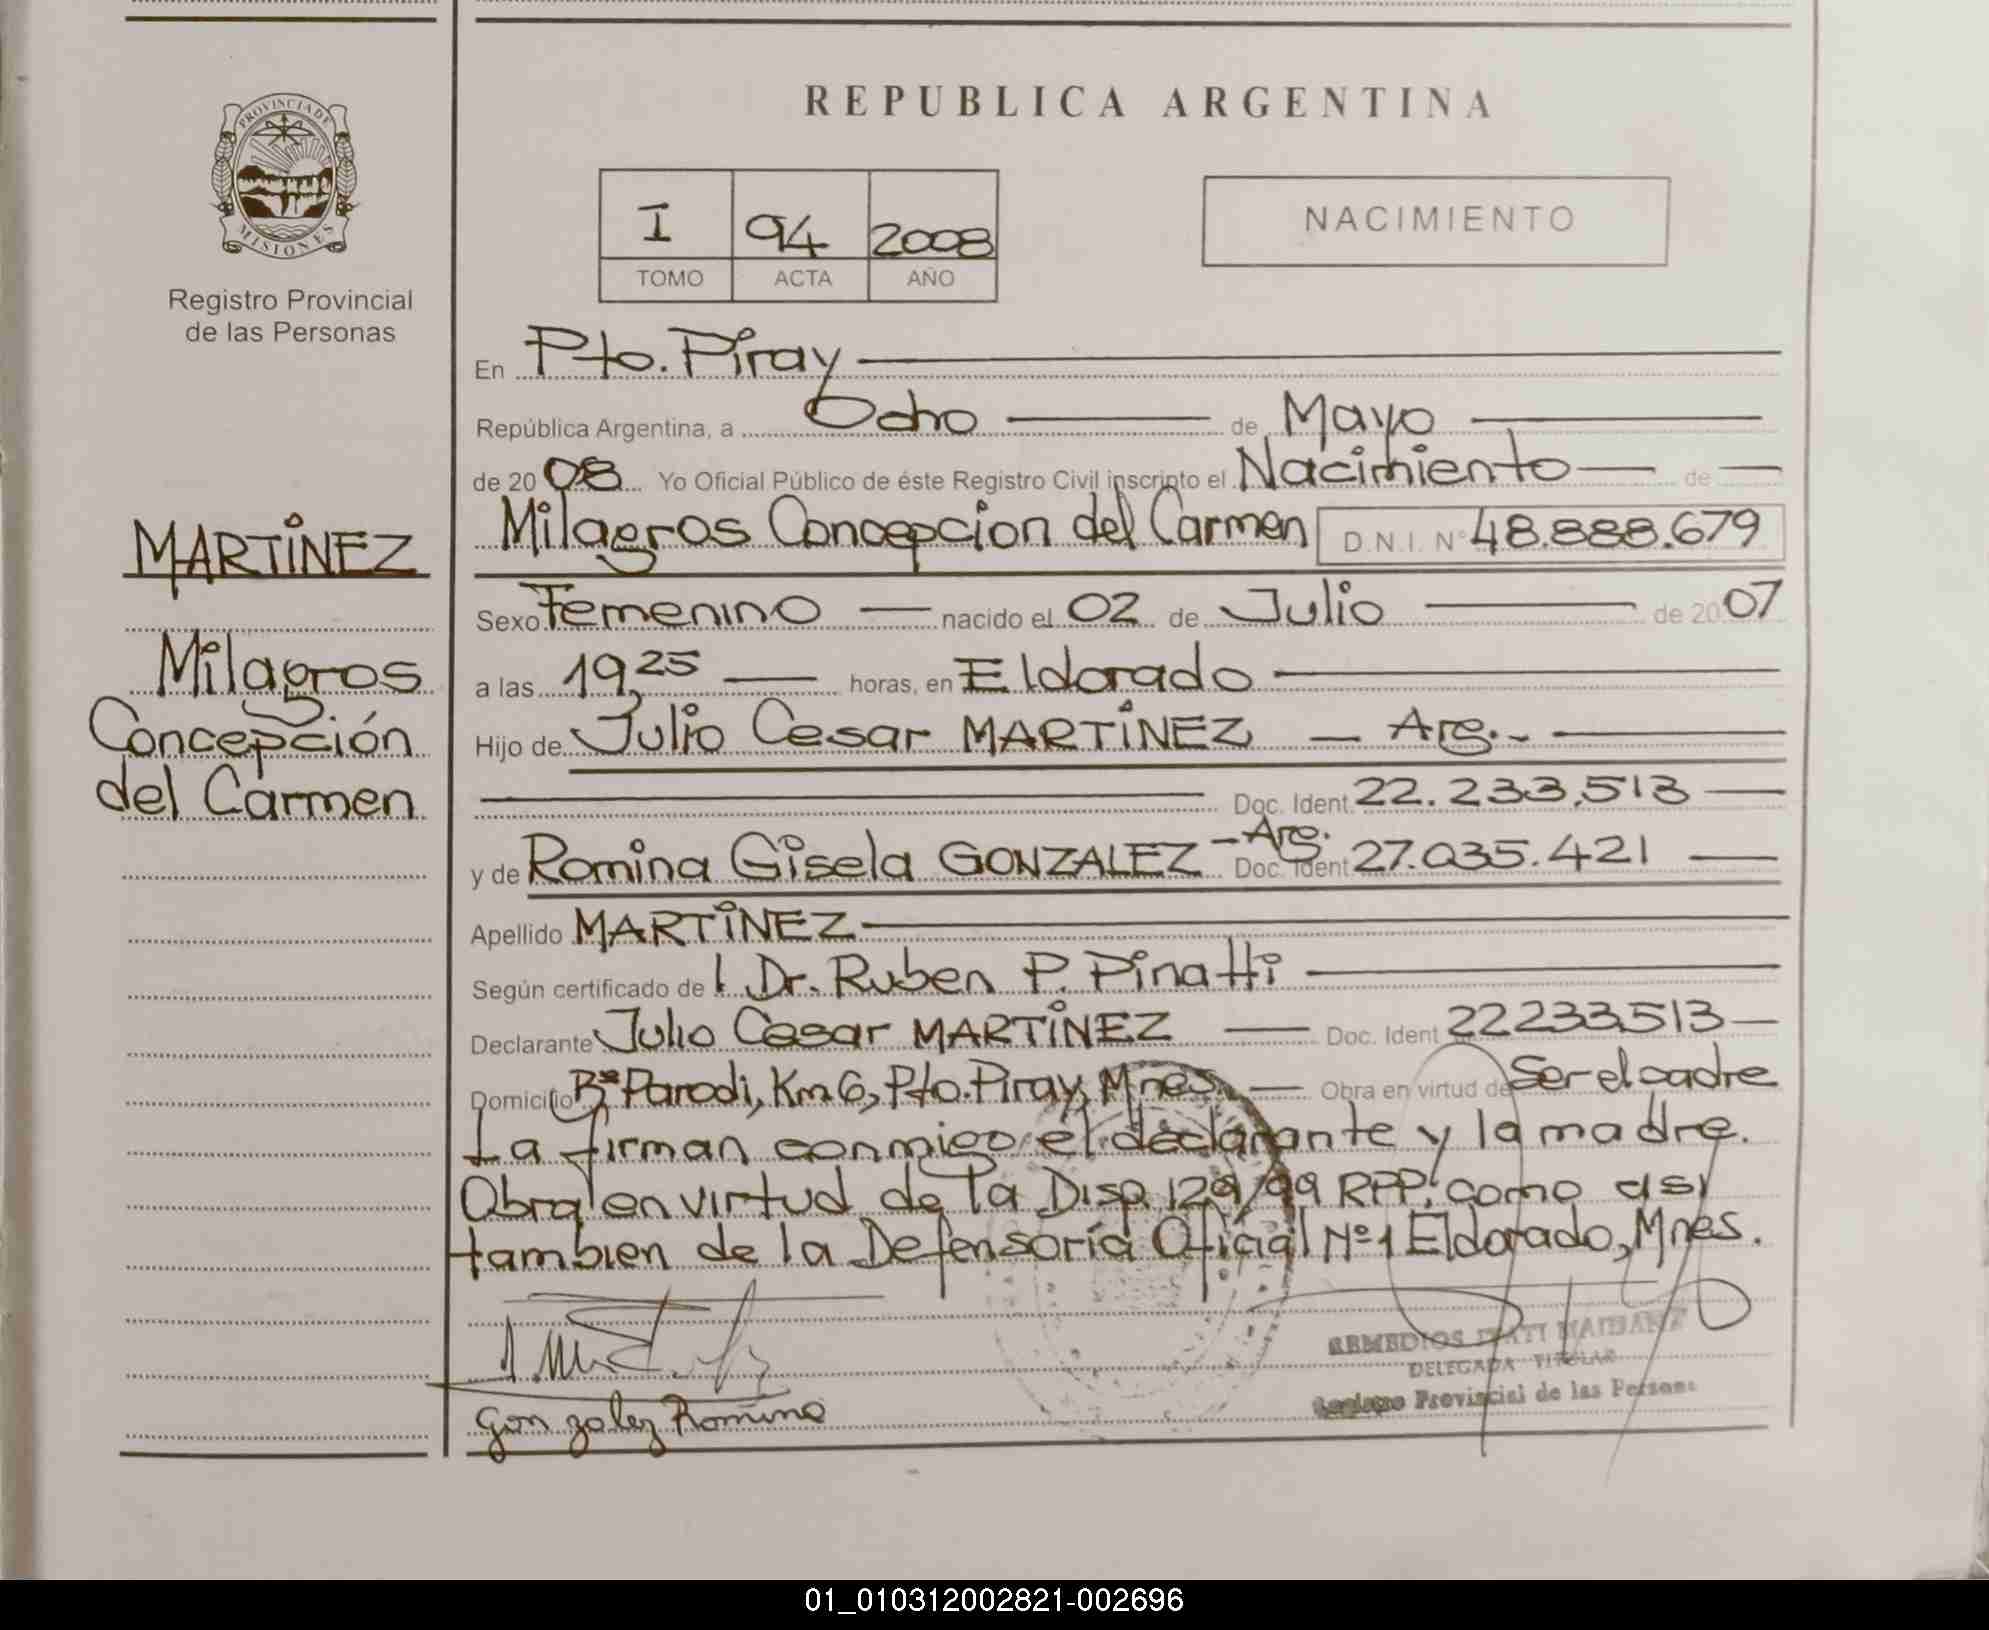 PROVINCIA DE
MISIONES
Registro Provincial
de las Personas
MARTINEZ
Milagros
Concepción
del Carmen
REPUBLICA ARGENTINA
I 94 2008
TOMO ACTA AÑO
NACIMIENTO
En Pto. Piray
República Argentina, a Ocho de Mayo
de 2008 Yo Oficial Público de éste Registro Civil inscripto el Nacimiento de
Milagros Concepcion del Carmen D.N.I. N° 48.888.679
Sexo Femenino nacido el 02 de Julio de 2007
a las 19,25 horas, en Eldorado
Hijo de Julio Cesar MARTINEZ - Arg.-
Doc. Ident. 22.233.513
y de Romina Gisela GONZALEZ - Arg. Doc. Ident 27.035.421
Apellido MARTINEZ
Según certificado de l Dr. Ruben P. Pinatti
Declarante Julio Cesar MARTINEZ Doc. Ident 22233513
Domicilio B° Parodi, Km 6, Pto. Piray, Mnes. Obra en virtud de Ser el padre
La firman conmigo el declarante y la madre.
Obra en virtud de la Disp. 129/99 RPP. como asi
tambien de la Defensoría Oficial Nº 1 Eldorado, Mnes.
Gonzalez Romina
REMEDIOS ITATI
DELEGADA TITULAR
Registro Provincial de las Personas
01_010312002821-002696